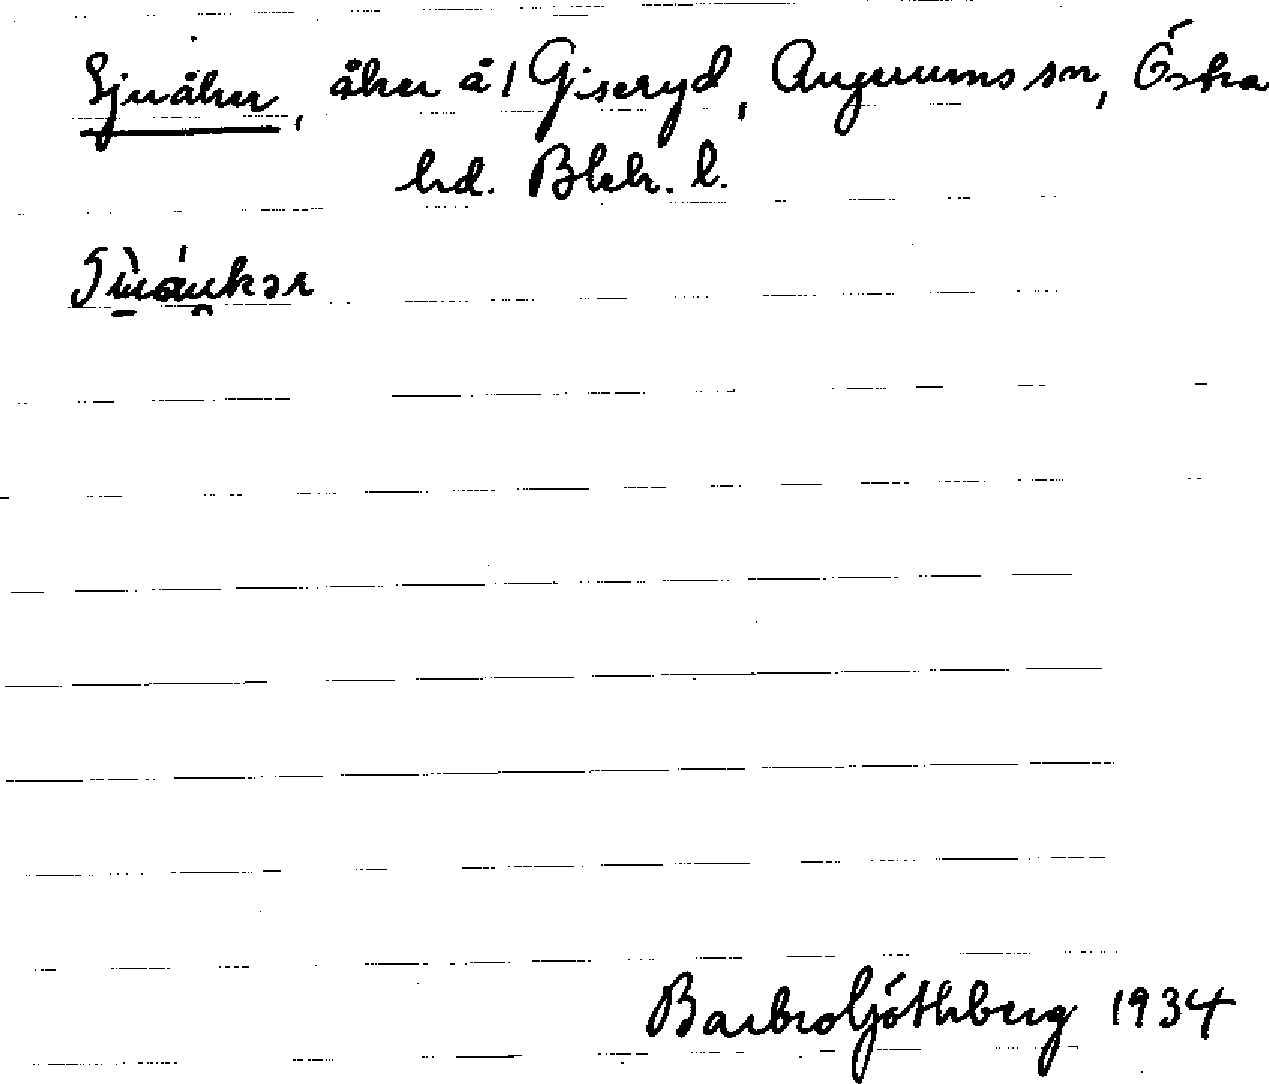 Sjuåker, åker å 1 Giseryd, Asarums sn, Östra
hd. Blek. l.
Barbro Göthberg 1934